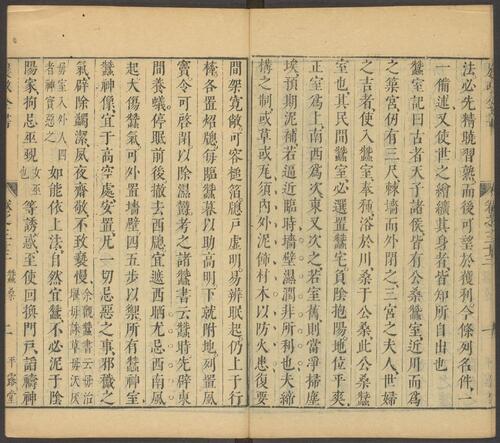 法必先精曉習熟而後可望於獲利今條列名件一
一備述又使世之繪纊其身者皆知所自出也
蠶室記曰古者天子諸侯皆有公桑蠶室近川而爲
之築宮仍有三尺棘墻而外閉之三宮之夫人世婦
之吉者使入蠶室奉種浴於川桑于公桑此公桑蠶
室也其民間蠶室必選置蠶宅負陰抱陽地位平爽
正室爲上南西爲次東又次之若室舊則當淨掃塵
埃預期泥補若逼近臨時墻壁濕潤非所利也夫締
構之制或草或瓦須內外泥飾材木以防火患復要
間架寬敞可容槌箔牕戶虛明易辨眠起仍上于行
㮇各置炤牕每臨蠶暮以助高明下就附地列置風
竇令可啓閉以除濕鬱考之諸蠶書云蠶時先辟東
間養蟻停眠前後撤去西牕宜遮西晒尤忌西南風
起大傷蠶氣可外置墻壁四五步以禦所有蠶室
蠶神像宜于高空處安置凡一切忌惡之事邪穢之
氣辟除蠲潔夙夜齋敬不致褻慢余觀蠶書云毋治堰毋誅草毋沃灰
毋室入外人四者神實惡之如能依上法自然宜蠶不必泥于陰
陽家拘忌巫覡女巫也等誘惑至使回換門戶謟禱神
卷之三十三 蠶桑 二 平露堂